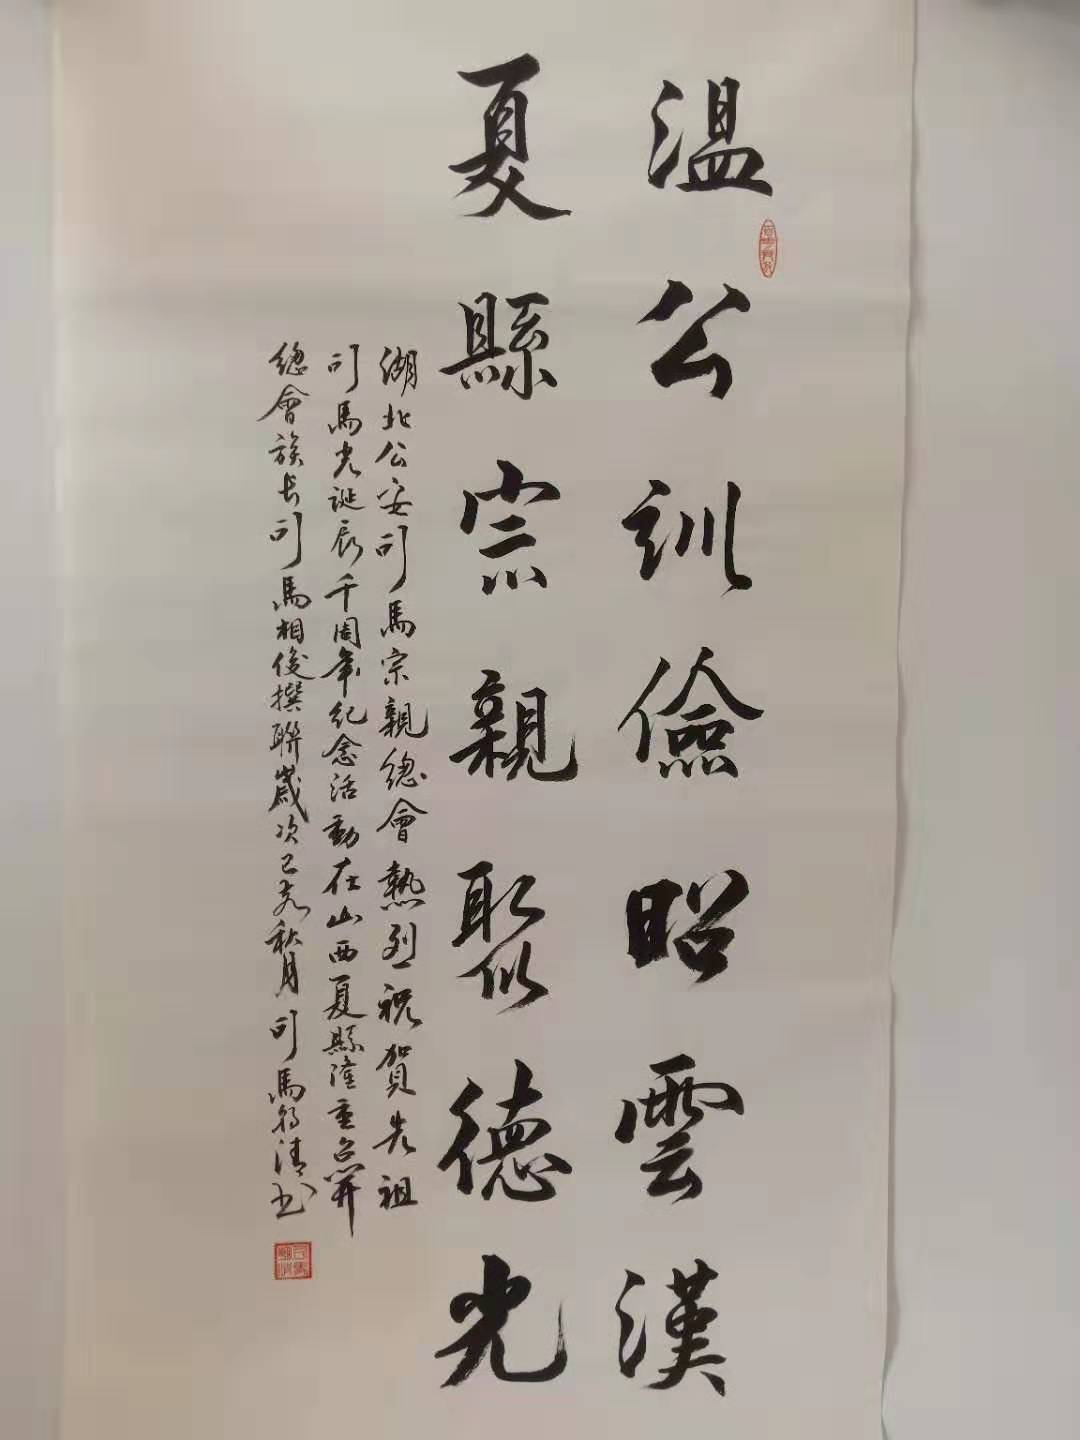 溫公訓儉昭雲漢
夏縣宗親聚德光
湖北公安司馬宗親總會熱烈祝賀先祖
司馬光誕辰千周年紀念活動在山西夏縣隆重召開
總會族長司馬相俊撰聯歲次己亥秋月司馬清書